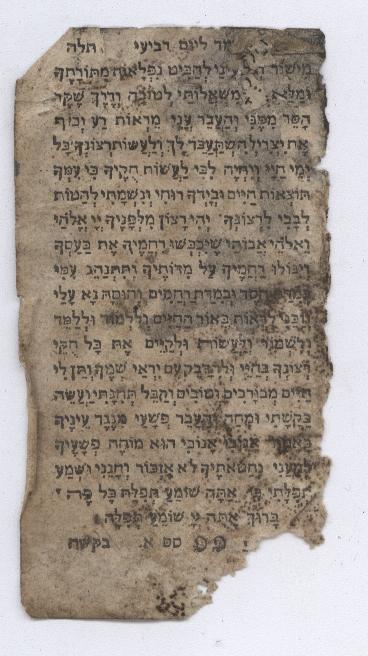 ליום רביעי תלה
עיני להביט נפלאות מתורתך
ומלא משאלותי לטובה ודרך שקר
הסר ממני והעבר עיני מראות רע וכוף
את יצרי להשתעבד לך ולעשות רצונך כל
ימי חיי ויהיה לבי לעשות חקיך כי עמך
תוצאות חיים ובידך רוחי ונשמתי להטות
לבבי לרצונך יהי רצון מלפניך יי אלהי
ואלהי אבותי שיכבשו רחמיך את כעסך
ויגולו רחמיך על מדותיך ותתנהג עמי
במדת חסד ובמדת רחמים וחוסה נא עלי
וזכני לראות באור החיים וללמוד וללמד
ולשמור ולעשות ולקיים את כל חקי
רצונך בחיי ולהדבק עם יראי שמך ותן לי
חיים מבורכים וטובים וקבל תחנתי ועשה
בקשתי ומחה והעבר פשעי מנגד עיניך
כאמור אנכי אנכי הוא מוחה פשעיך
למעני וחטאתיך לא אזכור וחנני ושמע
תפלתי כי אתה שומע תפלת כל פה
ברוך אתה יי שומע תפלה
סט א בקשה